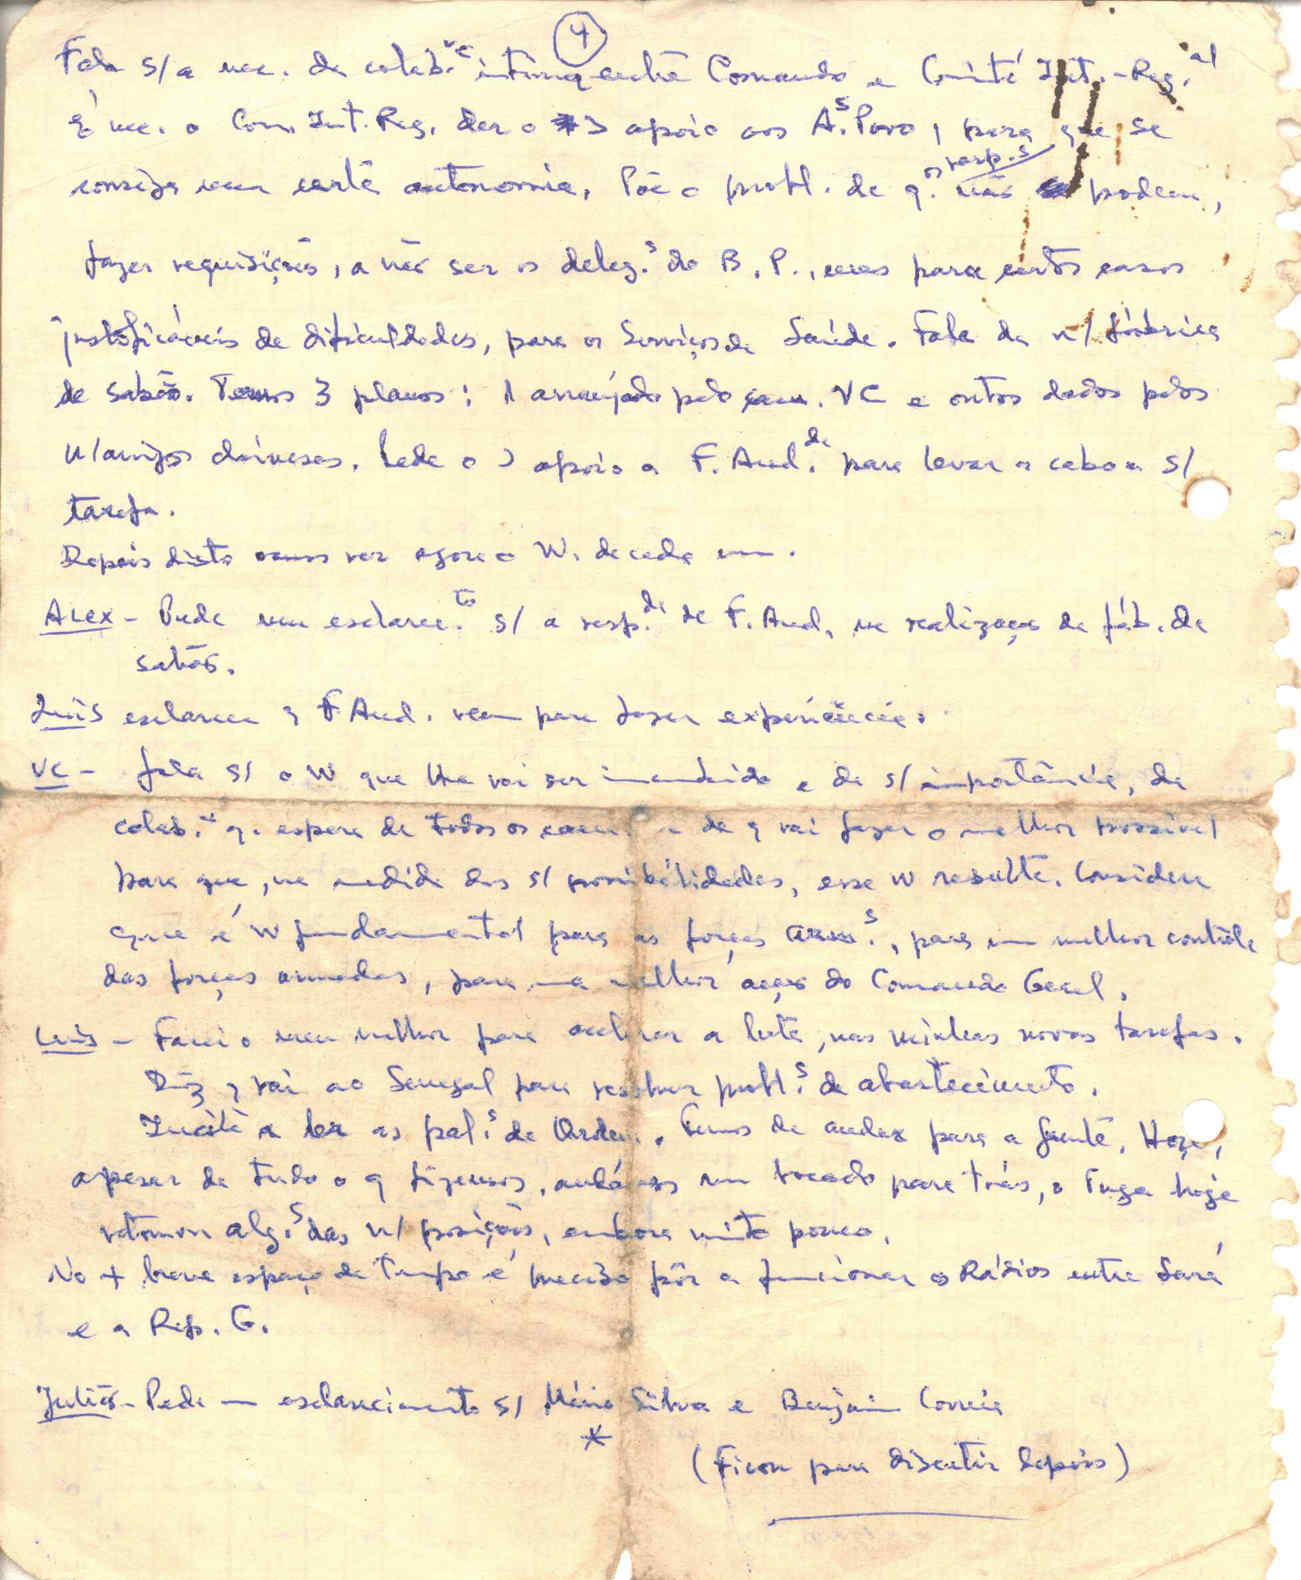 4
Fala s/ a nec. da colab.ção íntima entre Comando e Comité Int.-Reg.al
É nec. o Com. Int. Reg. dar o > apoio aos A.s Povo, para que se
consiga uma certa autonomia. Põe o probl. de q. os resp.s não podem,
fazer requisições, a não ser os deleg.s do B. P., mas para certos casos
justificáveis de dificuldades, para os Serviços de Saúde. Fala da n/ fábrica
de sabão. Temos 3 planos: 1 arranjado pelo cam. VC e outros dados pelos
n/ amigos chineses. Pede o > apoio a F. And.de para levar a cabo a s/
tarefa.
Depois disto vamos ver agora o W. de cada um.
Alex - Pede um esclarec.to s/ a resp.de de F. And. na realização da fáb. de
sabão.
Luís esclarece q F. And. vem para fazer experiências.
VC - fala s/ o W que lhe vai ser incumbido e da s/ importância, da
colab. q. espera de todos os cam. e de q vai fazer o melhor possível
para que, na medida das s/ possibilidades, esse W resulte. Considera
que é W fundamental para as forças arm.s, para um melhor contrôle
das forças armadas, para uma melhor acção do Comando Geral.
Luís - Farei o meu melhor para acelerar a luta, nas minhas novas tarefas.
Diz q vai ao Senegal para resolver probl.s de abastecimento.
Incita a ler as pal.s de Ordem. Temos de andar para a frente. Hoje,
apesar de tudo o q fizemos, andámos um bocado para trás, o Tuga hoje
retomou alg.s das n/ posições, embora muito pouco.
No + breve espaço de Tempo é preciso pôr a funcionar os Rádios entre Sará
e a Rep. G.
Julião - Pede um esclarecimento s/ Mário Silva e Benjamim Correia
*
(Ficou para discutir depois)